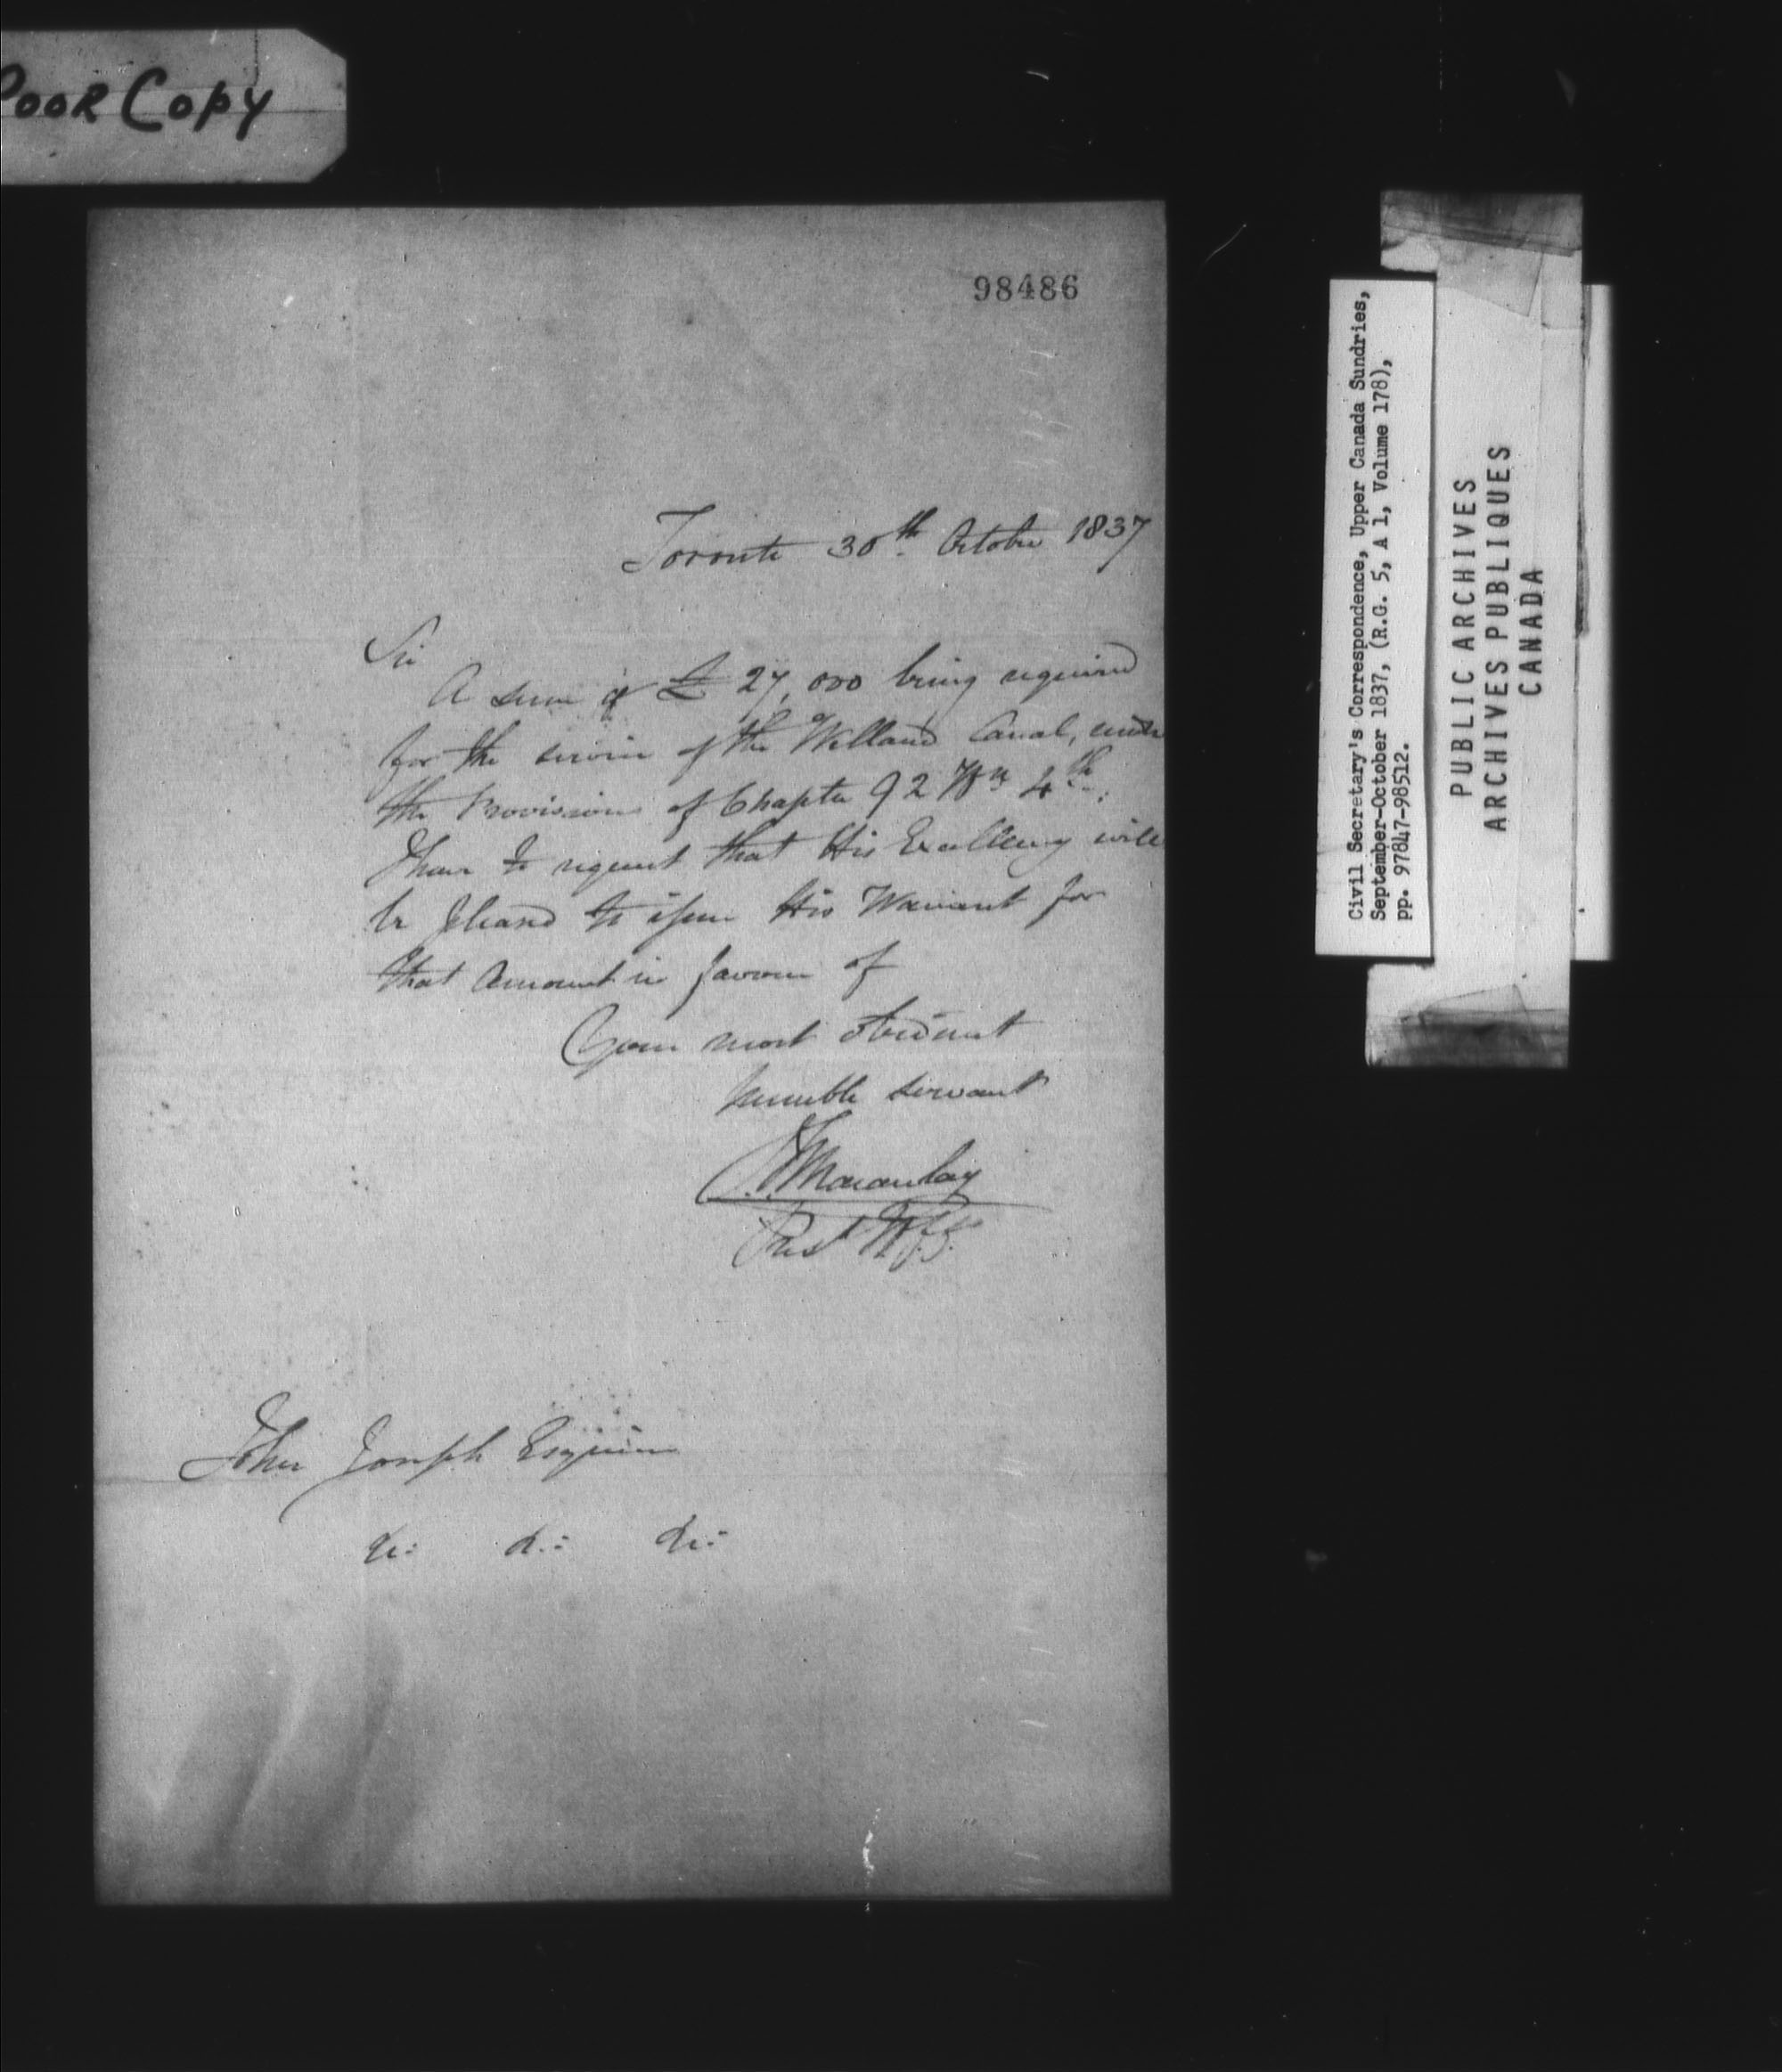 Poor Copy
98486
Toronto 30th October 1837
Sir
A sum of £ 27,000 being required
for the service of the Welland Canal, under
the Provisions of Chapter 92 Wm 4th:
I have to request that His Excellency will
be pleased to issue His Warrant for
that amount in favour of
Your most obedient
humble servant
J. Macaulay
Prest
John Joseph Esquire
&c: &c: &c:
Civil Secretary's Correspondence, Upper Canada Sundries,
September-October 1837, (R.G. 5, A 1, Volume 178),
pp. 97847-98512.
PUBLIC ARCHIVES
ARCHIVES PUBLIQUES
CANADA